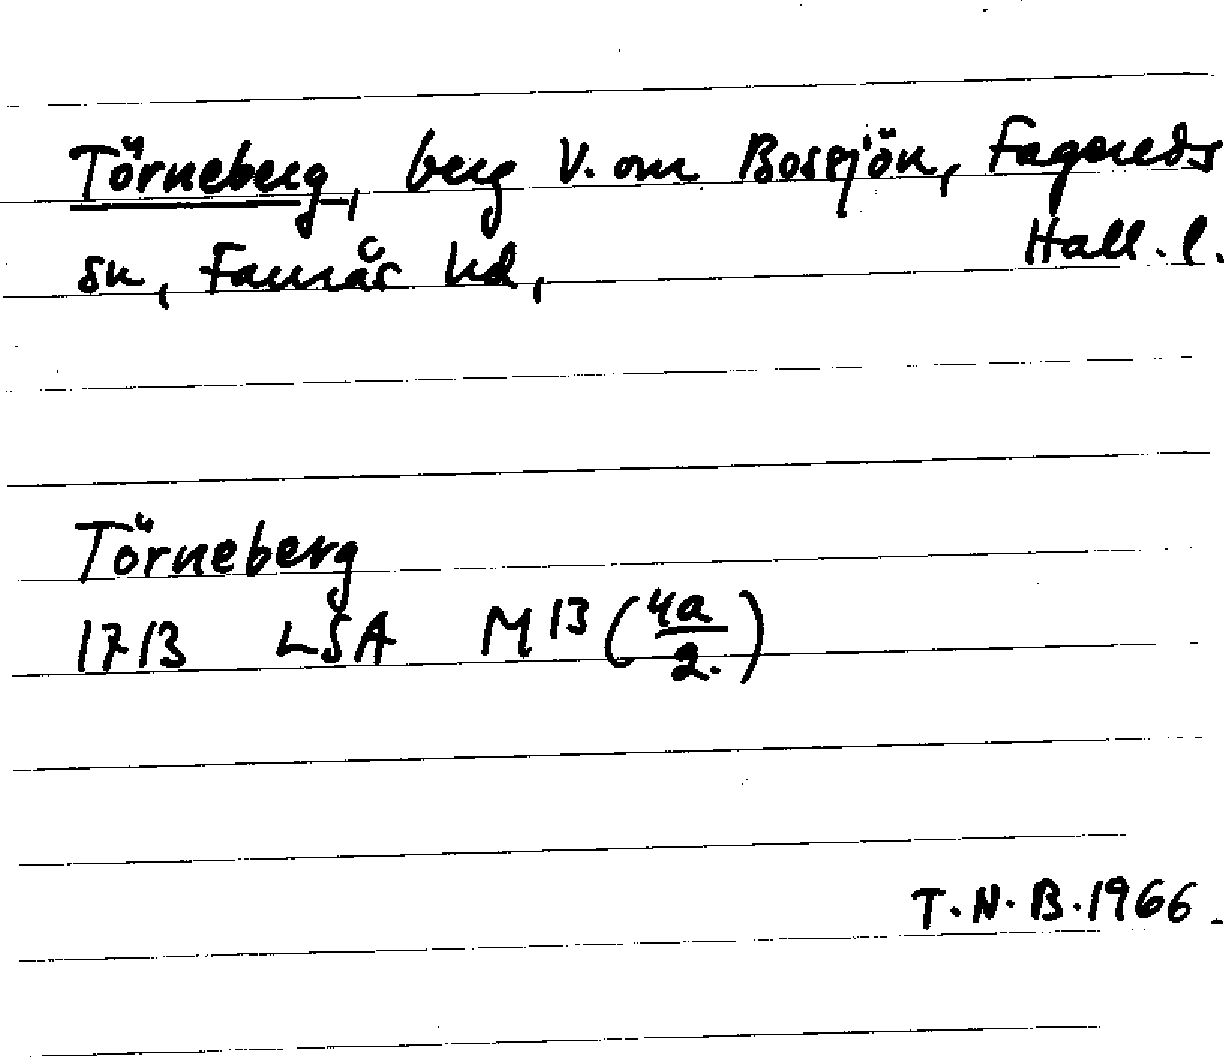 Törneberg, berg V. om Bossjön, Fagereds
sn, Faurås hd, Hall. l.
Törneberg
1713 LSA M13 (4a/2.)
T.N.B. 1966.